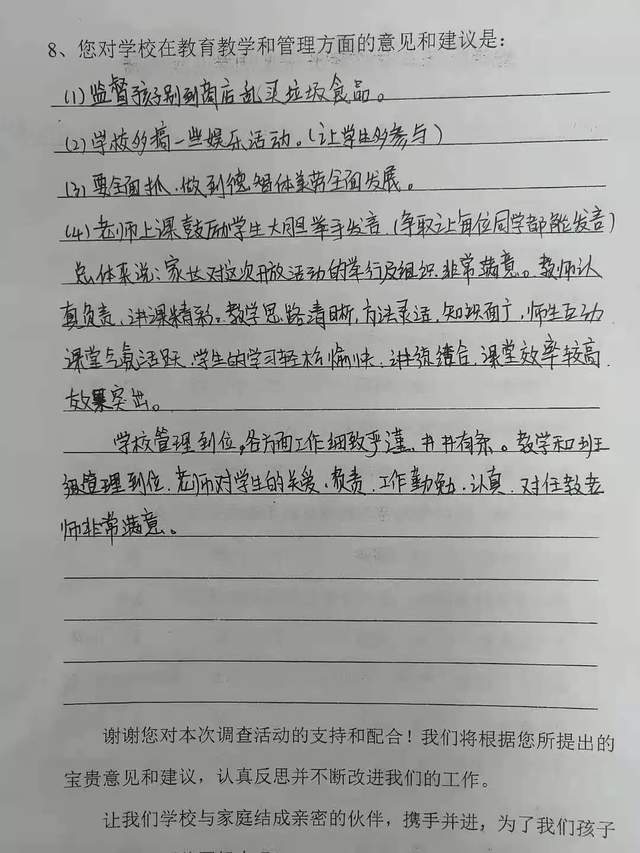 8、您对学校在教育教学和管理方面的意见和建议是：
(1)监督孩子别到商店乱买垃圾食品。
(2)学校多搞一些娱乐活动。(让学生多参与)
(3)要全面抓.做到德智体美劳全面发展。
(4)老师上课鼓励学生大胆举手发言.(争取让每位同学都能发言)
总体来说:家长对这次开放活动的举行及组织.非常满意。教师认
真负责,讲课精彩。教学思路清晰,方法灵活,知识面广,师生互动
课堂气氛活跃.学生的学习轻松愉快.讲练结合.课堂效率较高.
效果突出。
学校管理到位,各方面工作细致严谨.井井有条。教学和班
级管理到位.老师对学生的关爱、负责.工作勤勉.认真.对任教老
师非常满意。
谢谢您对本次调查活动的支持和配合！我们将根据您所提出的
宝贵意见和建议，认真反思并不断改进我们的工作。
让我们学校与家庭结成亲密的伙伴，携手并进，为了我们孩子